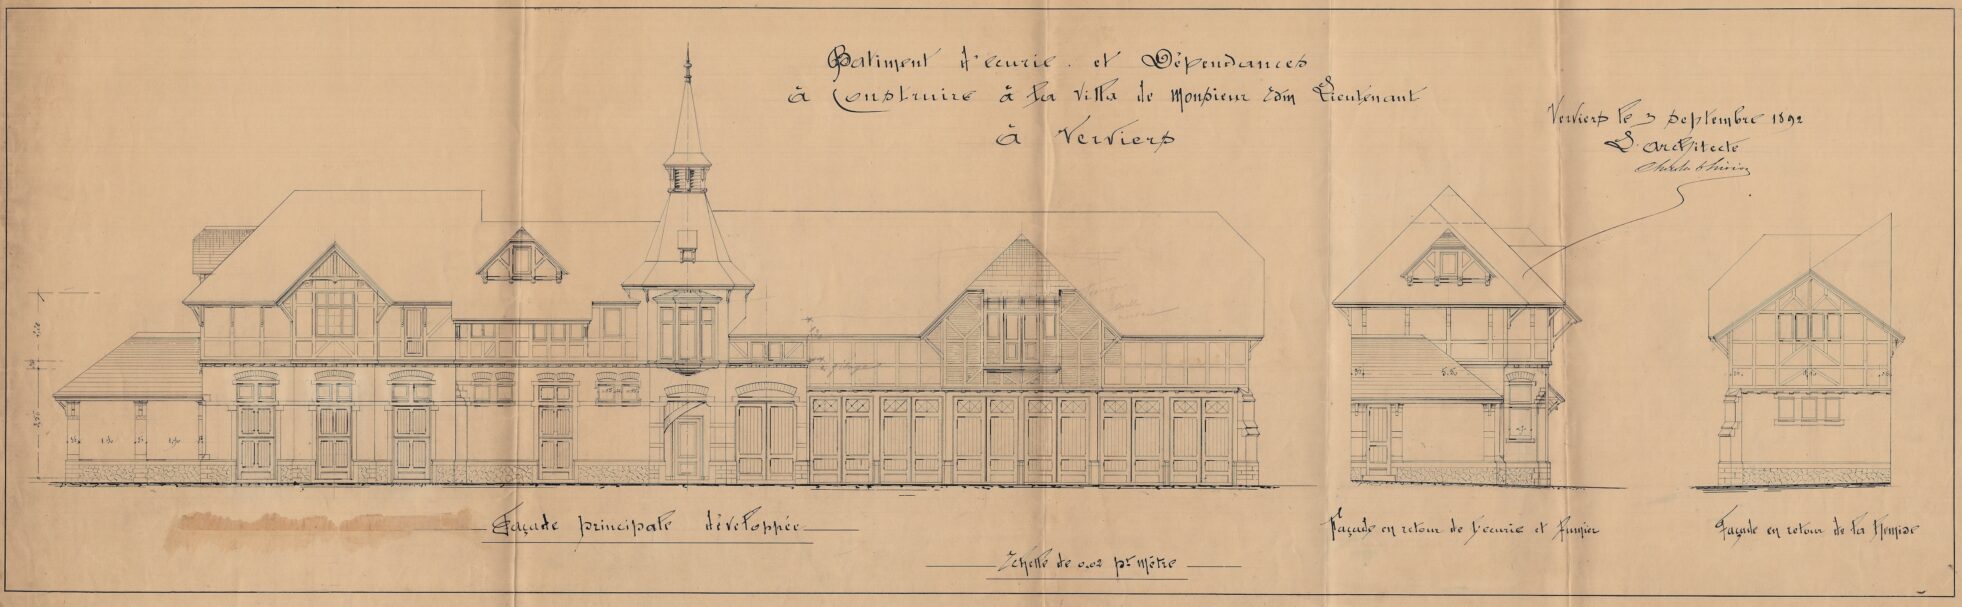 Bâtiment d'écurie et Dépendances
à Construire à la Villa de Monsieur Edm Lieutenant
à Verviers
Verviers le 3 Septembre 1892
L'architecte
Charles Thirion
Façade principale développée
Façade en retour de l'écurie et fumier
Façade en retour de la Remise
Echelle de 0.02 pr mètre